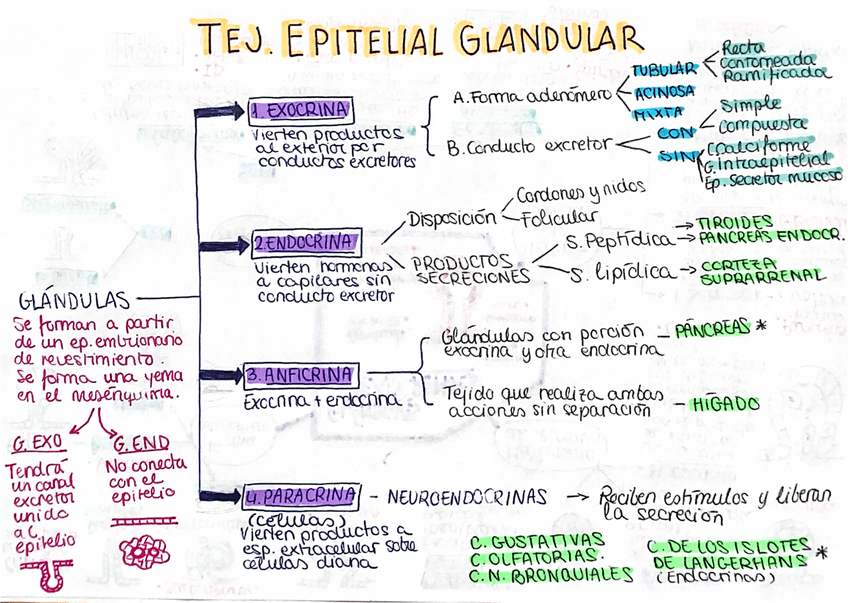 TEJ. EPITELIAL GLANDULAR
GLÁNDULAS
Se forman a partir
de un ep. embrionario
de revestimiento.
Se forma una yema
en el mesénquima.
G. EXO
Tendrá
un canal
excretor
unido
al
epitelio
G. END
No conecta
con el
epitelio
1. EXOCRINA
Vierten productos
al exterior por
conductos excretores
A. Forma adenómero
TUBULAR
Recta
Contorneada
Ramificada
ACINOSA
MIXTA
B. Conducto excretor
CON
Simple
Compuesta
SIN
Caliciforme
G. intraepitelial
Ep. Secretor mucoso
2. ENDOCRINA
Vierten hormonas
a capilares sin
conducto excretor
Disposición
Cordones y nidos
Folicular
PRODUCTOS
SECRECIONES
S. Peptídica
→ TIROIDES
→ PÁNCREAS ENDOCR.
S. lipídica → CORTEZA
SUPRARRENAL
3. ANFICRINA
Exocrina + endocrina
Glándulas con porción
exocrina y otra endocrina
– PÁNCREAS *
Tejido que realiza ambas
acciones sin separación
– HÍGADO
4. PARACRINA
(células)
Vierten productos a
esp. extracelular sobre
células diana
– NEUROENDOCRINAS → Reciben estímulos y liberan
la secreción
C. GUSTATIVAS
C. OLFATORIAS.
C. N. BRONQUIALES
C. DE LOS ISLOTES
DE LANGERHANS *
(Endocrinas)